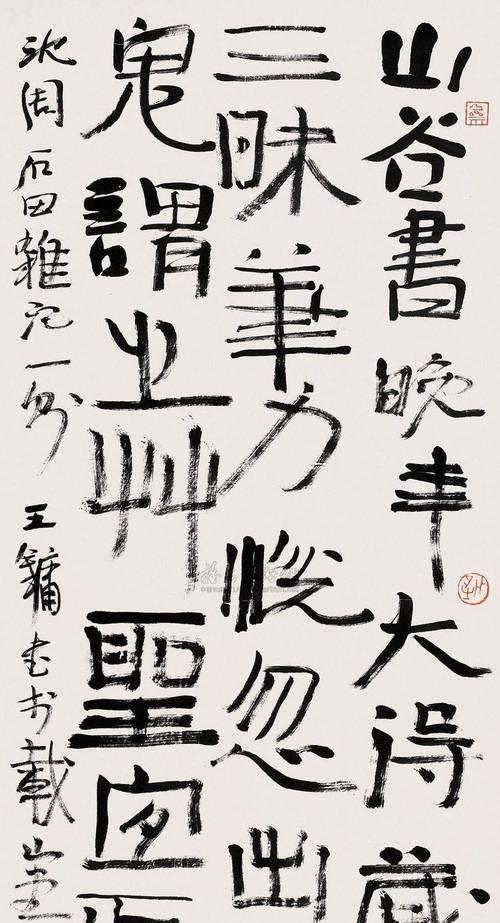 山谷書晚年大得藏
三昧筆力恍忽出
鬼謂之艸聖宜
沈周石田雜記一則 王鏞書於